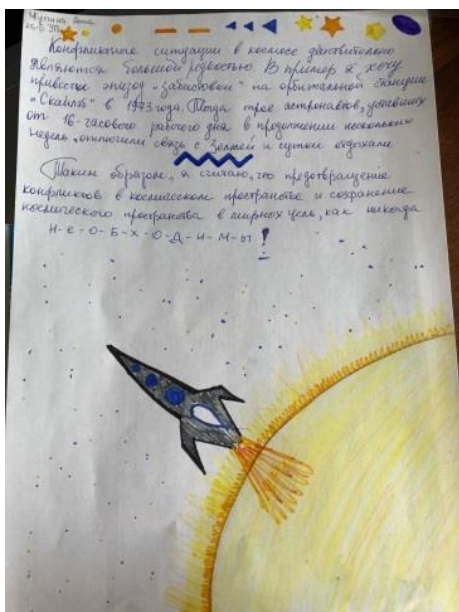 Конфликтные ситуации в космосе действительно
являются большой редкостью. В пример я хочу
привести эпизод "забастовки" на орбитальной станции
"Скайлэб" в 1973 года. Тогда трое астронавтов, уставших
от 16-часового рабочего дня в продолжении нескольких
недель, отключили связь с Землей и сутки отдыхали.
Таким образом, я считаю, что предотвращение
конфликтов в космическом пространстве и сохранение
космического пространства в мирных целях, как никогда
Н-е-О-Б-Х-О-Д-И-М-ы!